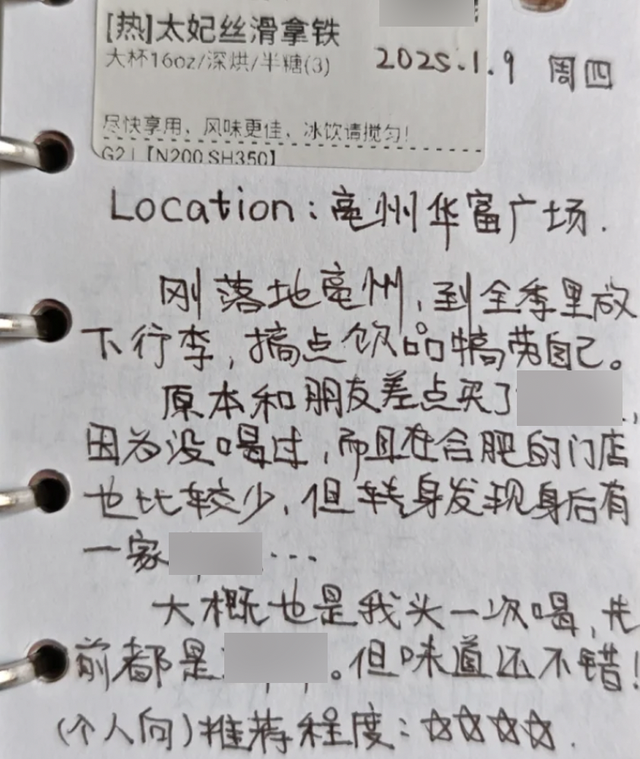 [热]太妃丝滑拿铁
大杯16oz/深烘/半糖(3)
2025.1.9 周四
尽快享用，风味更佳，冰饮请搅匀!
G2|【N200,SH350】
Location：亳州华富广场.
刚落地亳州，到全季里放
下行李，搞点饮品犒劳自己。
原本和朋友差点买了
因为没喝过，而且在合肥的门店
也比较少，但转身发现身后有
一家 ...
大概也是我头一次喝，先
前都是 。但味道还不错！
(个人向)推荐程度：☆☆☆☆.